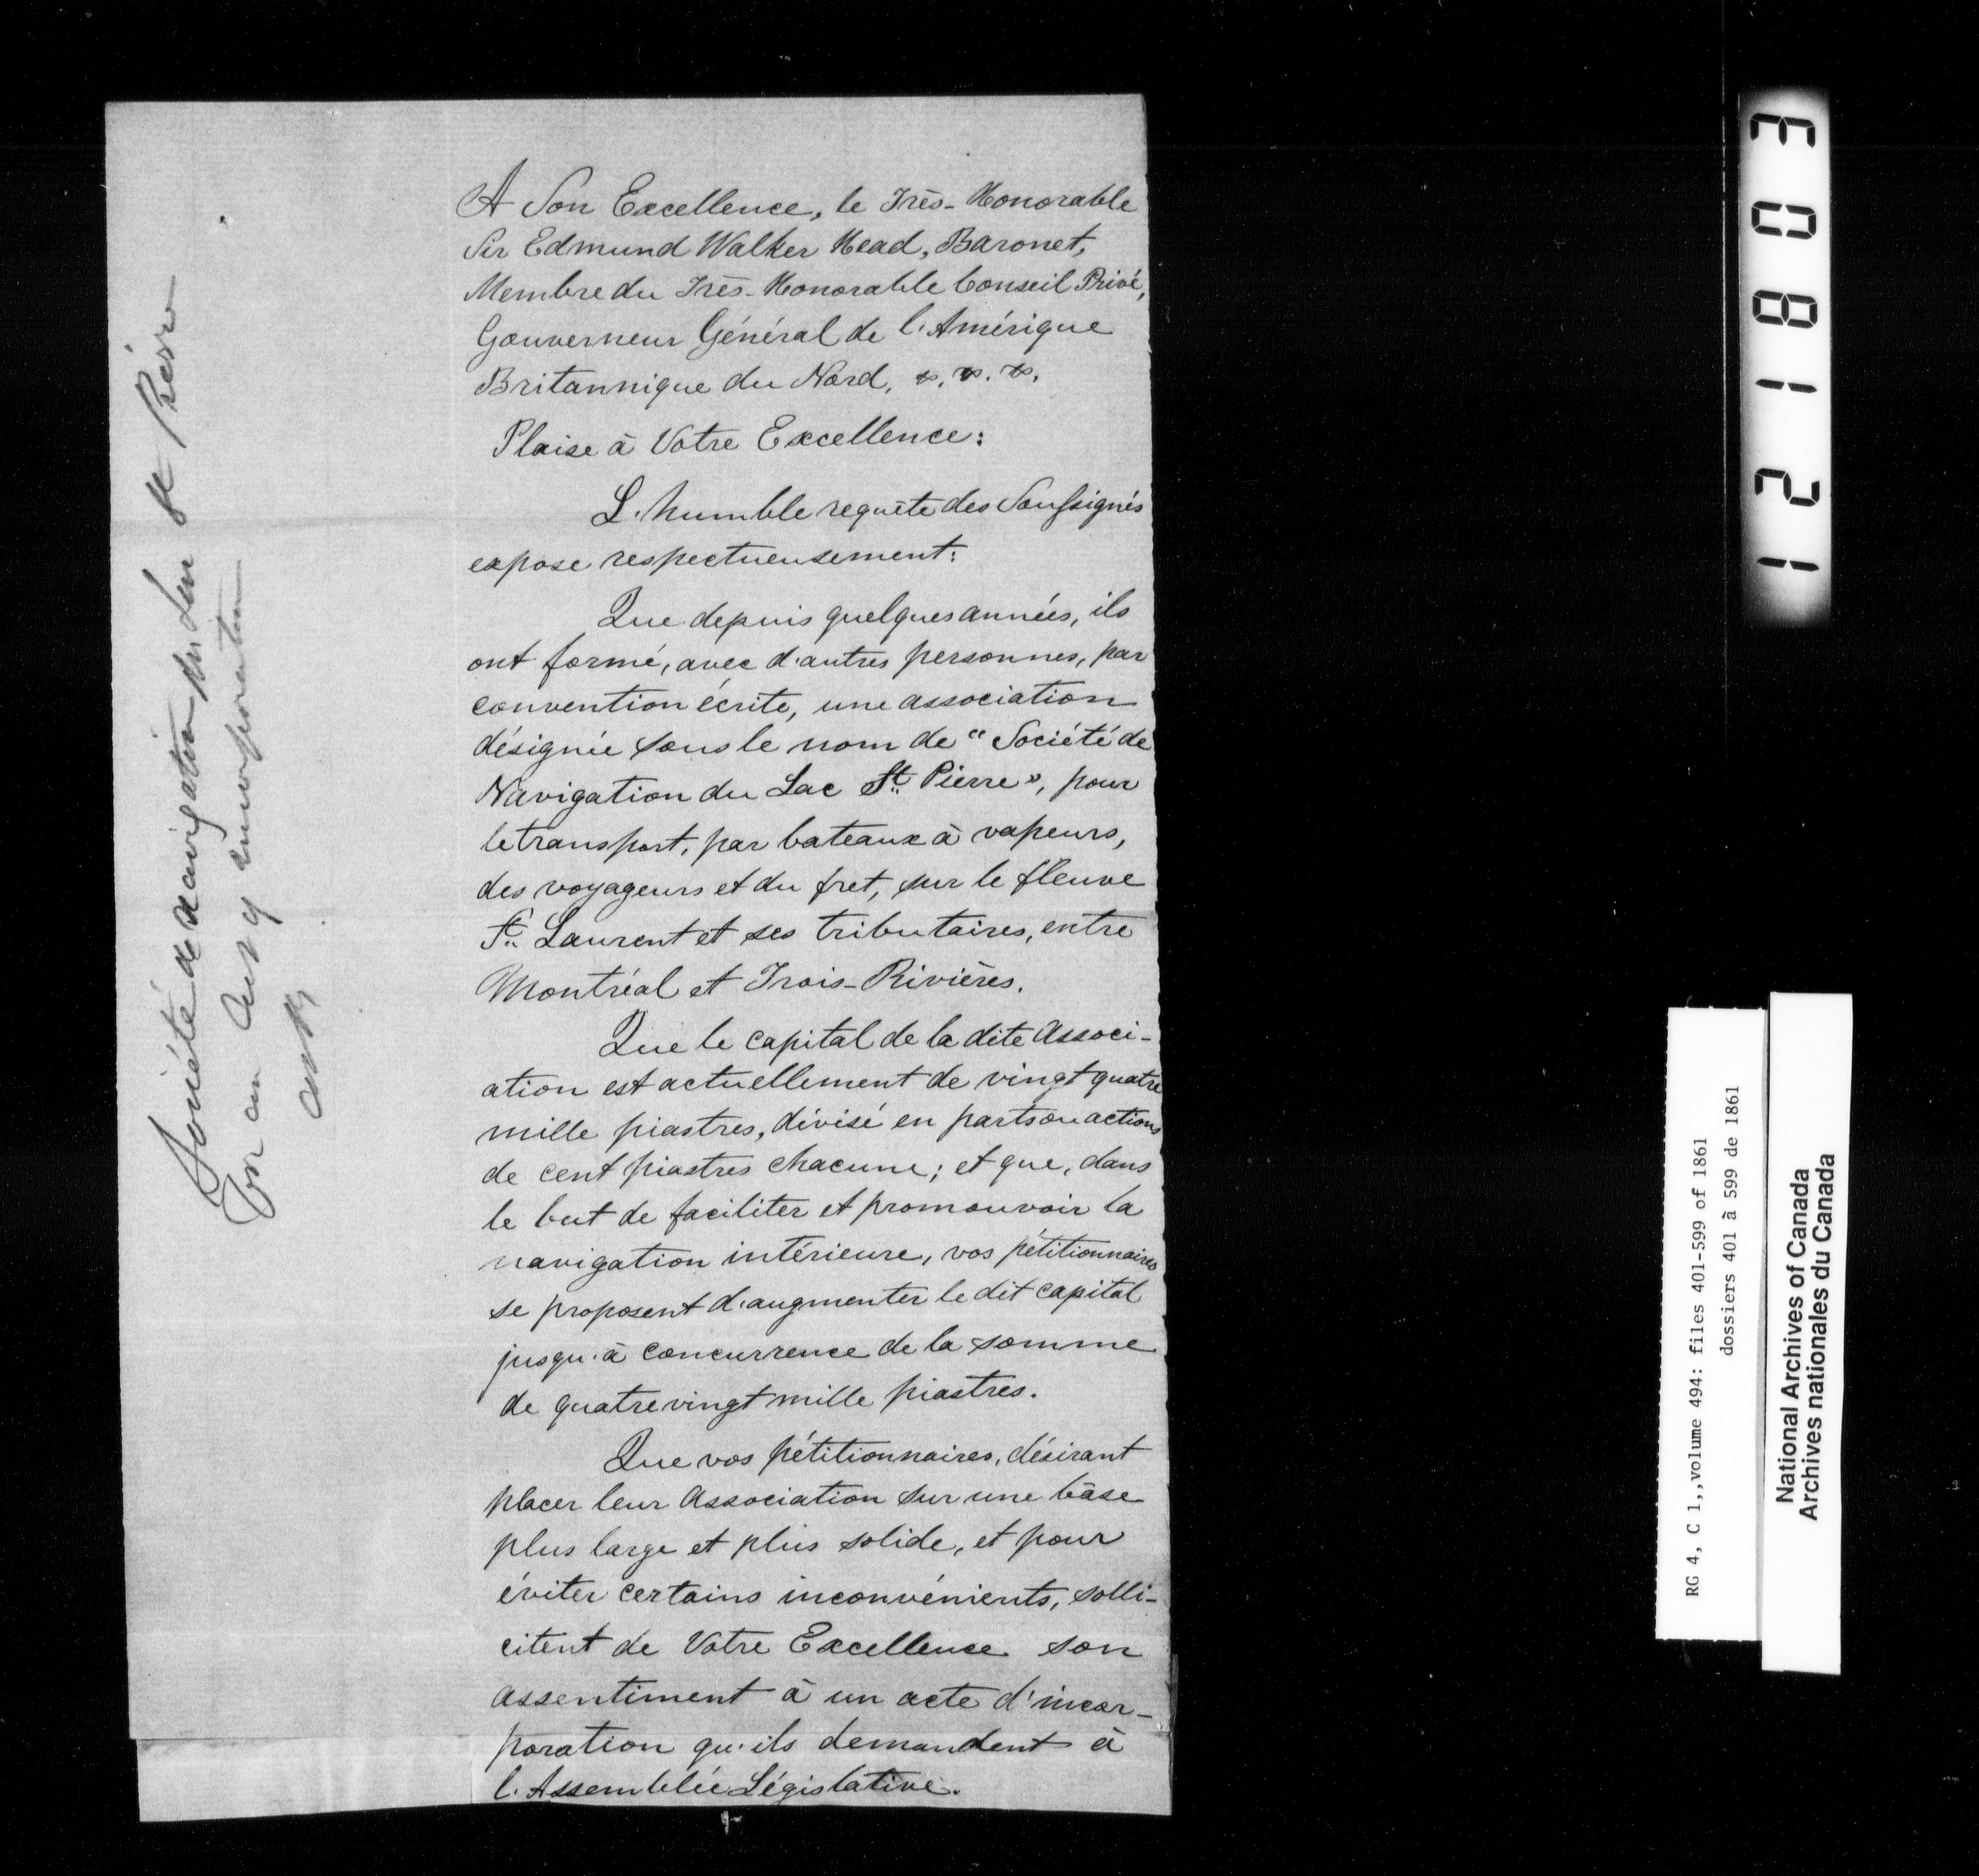 A Son Excellence, le Très-Honorable
Sir Edmund Walker Head, Baronet,
Membre du Très-Honorable Conseil Privé,
Gouverneur Général de l'Amérique
Britannique du Nord, &. &. &.
Plaise à Votre Excellence:
L'humble requête des Soussignés
expose respectueusement:
Que depuis quelques années, ils
ont formé, avec d'autres personnes, par
convention écrite, une association
désignée sous le nom de "Société de
Navigation du Lac St. Pierre", pour
le transport, par bateaux à vapeurs,
des voyageurs et du fret, sur le fleuve
St. Laurent et ses tributaires, entre
Montréal et Trois-Rivières.
Que le capital de la dite Associ-
ation est actuellement de vingt quatre
mille piastres, divisé en parts ou actions
de cent piastres chacune; et que, dans
le but de faciliter et promouvoir la
navigation intérieure, vos pétitionnaires
se proposent d'augmenter le dit capital
jusqu'à concurrence de la somme
de quatre vingt mille piastres.
Que vos pétitionnaires, désirant
placer leur Association sur une bâse
plus large et plus solide, et pour
éviter certains inconvénients, solli-
citent de Votre Excellence son
assentiment à un acte d'incor-
poration qu'ils demandent à
l'Assemblée Législative.
Société de navigation du Lac St Pierre
For an Act of incorporation
121803
RG 4, C 1,,volume 494: files 401-599 of 1861
dossiers 401 à 599 de 1861
National Archives of Canada
Archives nationales du Canada